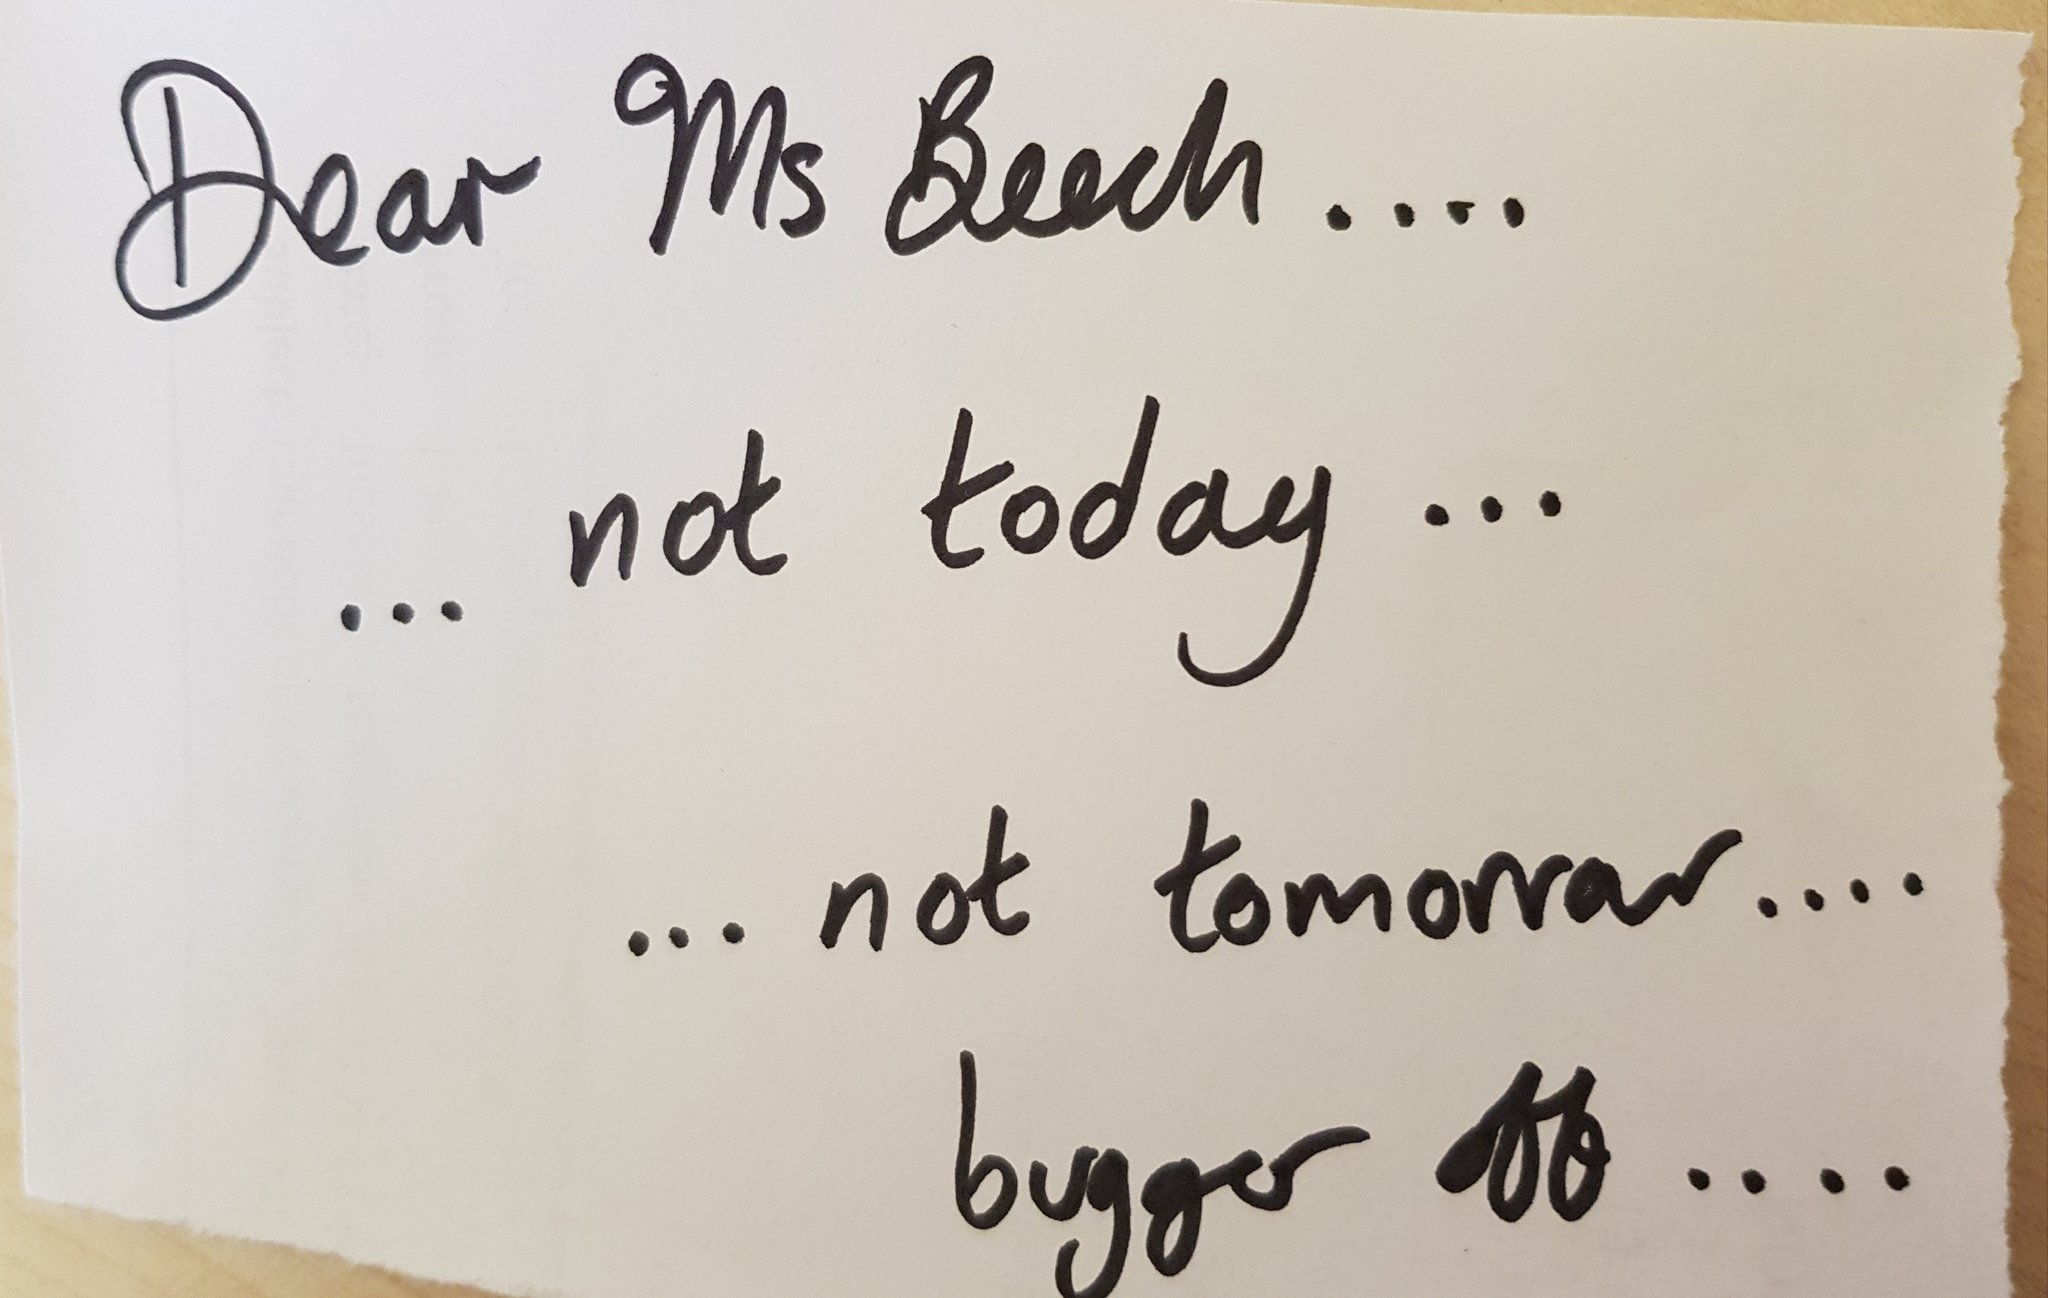 Dear Ms Beech....
... not today ...
... not tomorrow....
bugger off ....